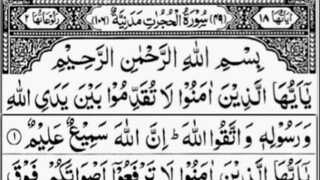 اٰیَاتُهَا ۱۸ (۴۹) سُوْرَةُ الْحُجُرٰتِ مَدَنِيَّةٌ (۱۰۶) رُكُوْعَاتُهَا ۲
بِسْمِ اللّٰهِ الرَّحْمٰنِ الرَّحِيْمِ
يٰۤاَيُّهَا الَّذِيْنَ اٰمَنُوْا لَا تُقَدِّمُوْا بَيْنَ يَدَيِ اللّٰهِ
وَرَسُوْلِهٖ وَاتَّقُوا اللّٰهَ ؕ اِنَّ اللّٰهَ سَمِيْعٌ عَلِيْمٌ ۝۱
يٰۤاَيُّهَا الَّذِيْنَ اٰمَنُوْا لَا تَرْفَعُوْۤا اَصْوَاتَكُمْ فَوْقَ